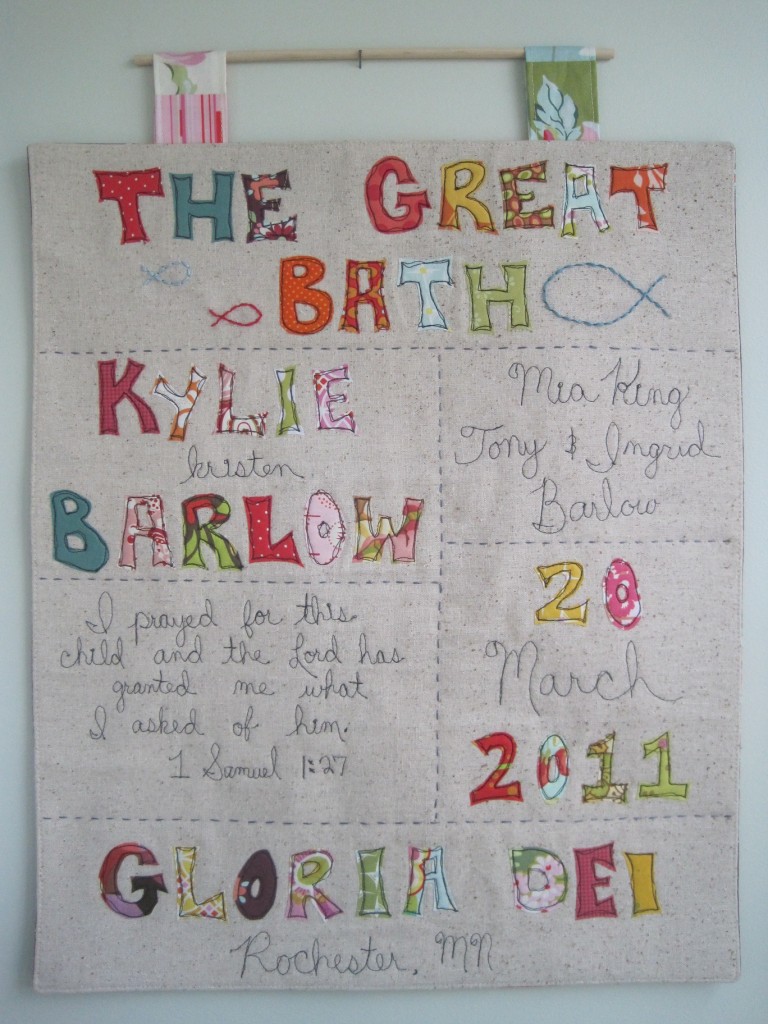 THE GREAT
BATH
KYLIE
kristen
BARLOW
Mia King
Tony & Ingrid
Barlow
I prayed for this
child and the Lord has
granted me what
I asked of him.
1 Samuel 1:27
20
March
2011
GLORIA DEI
Rochester, MN